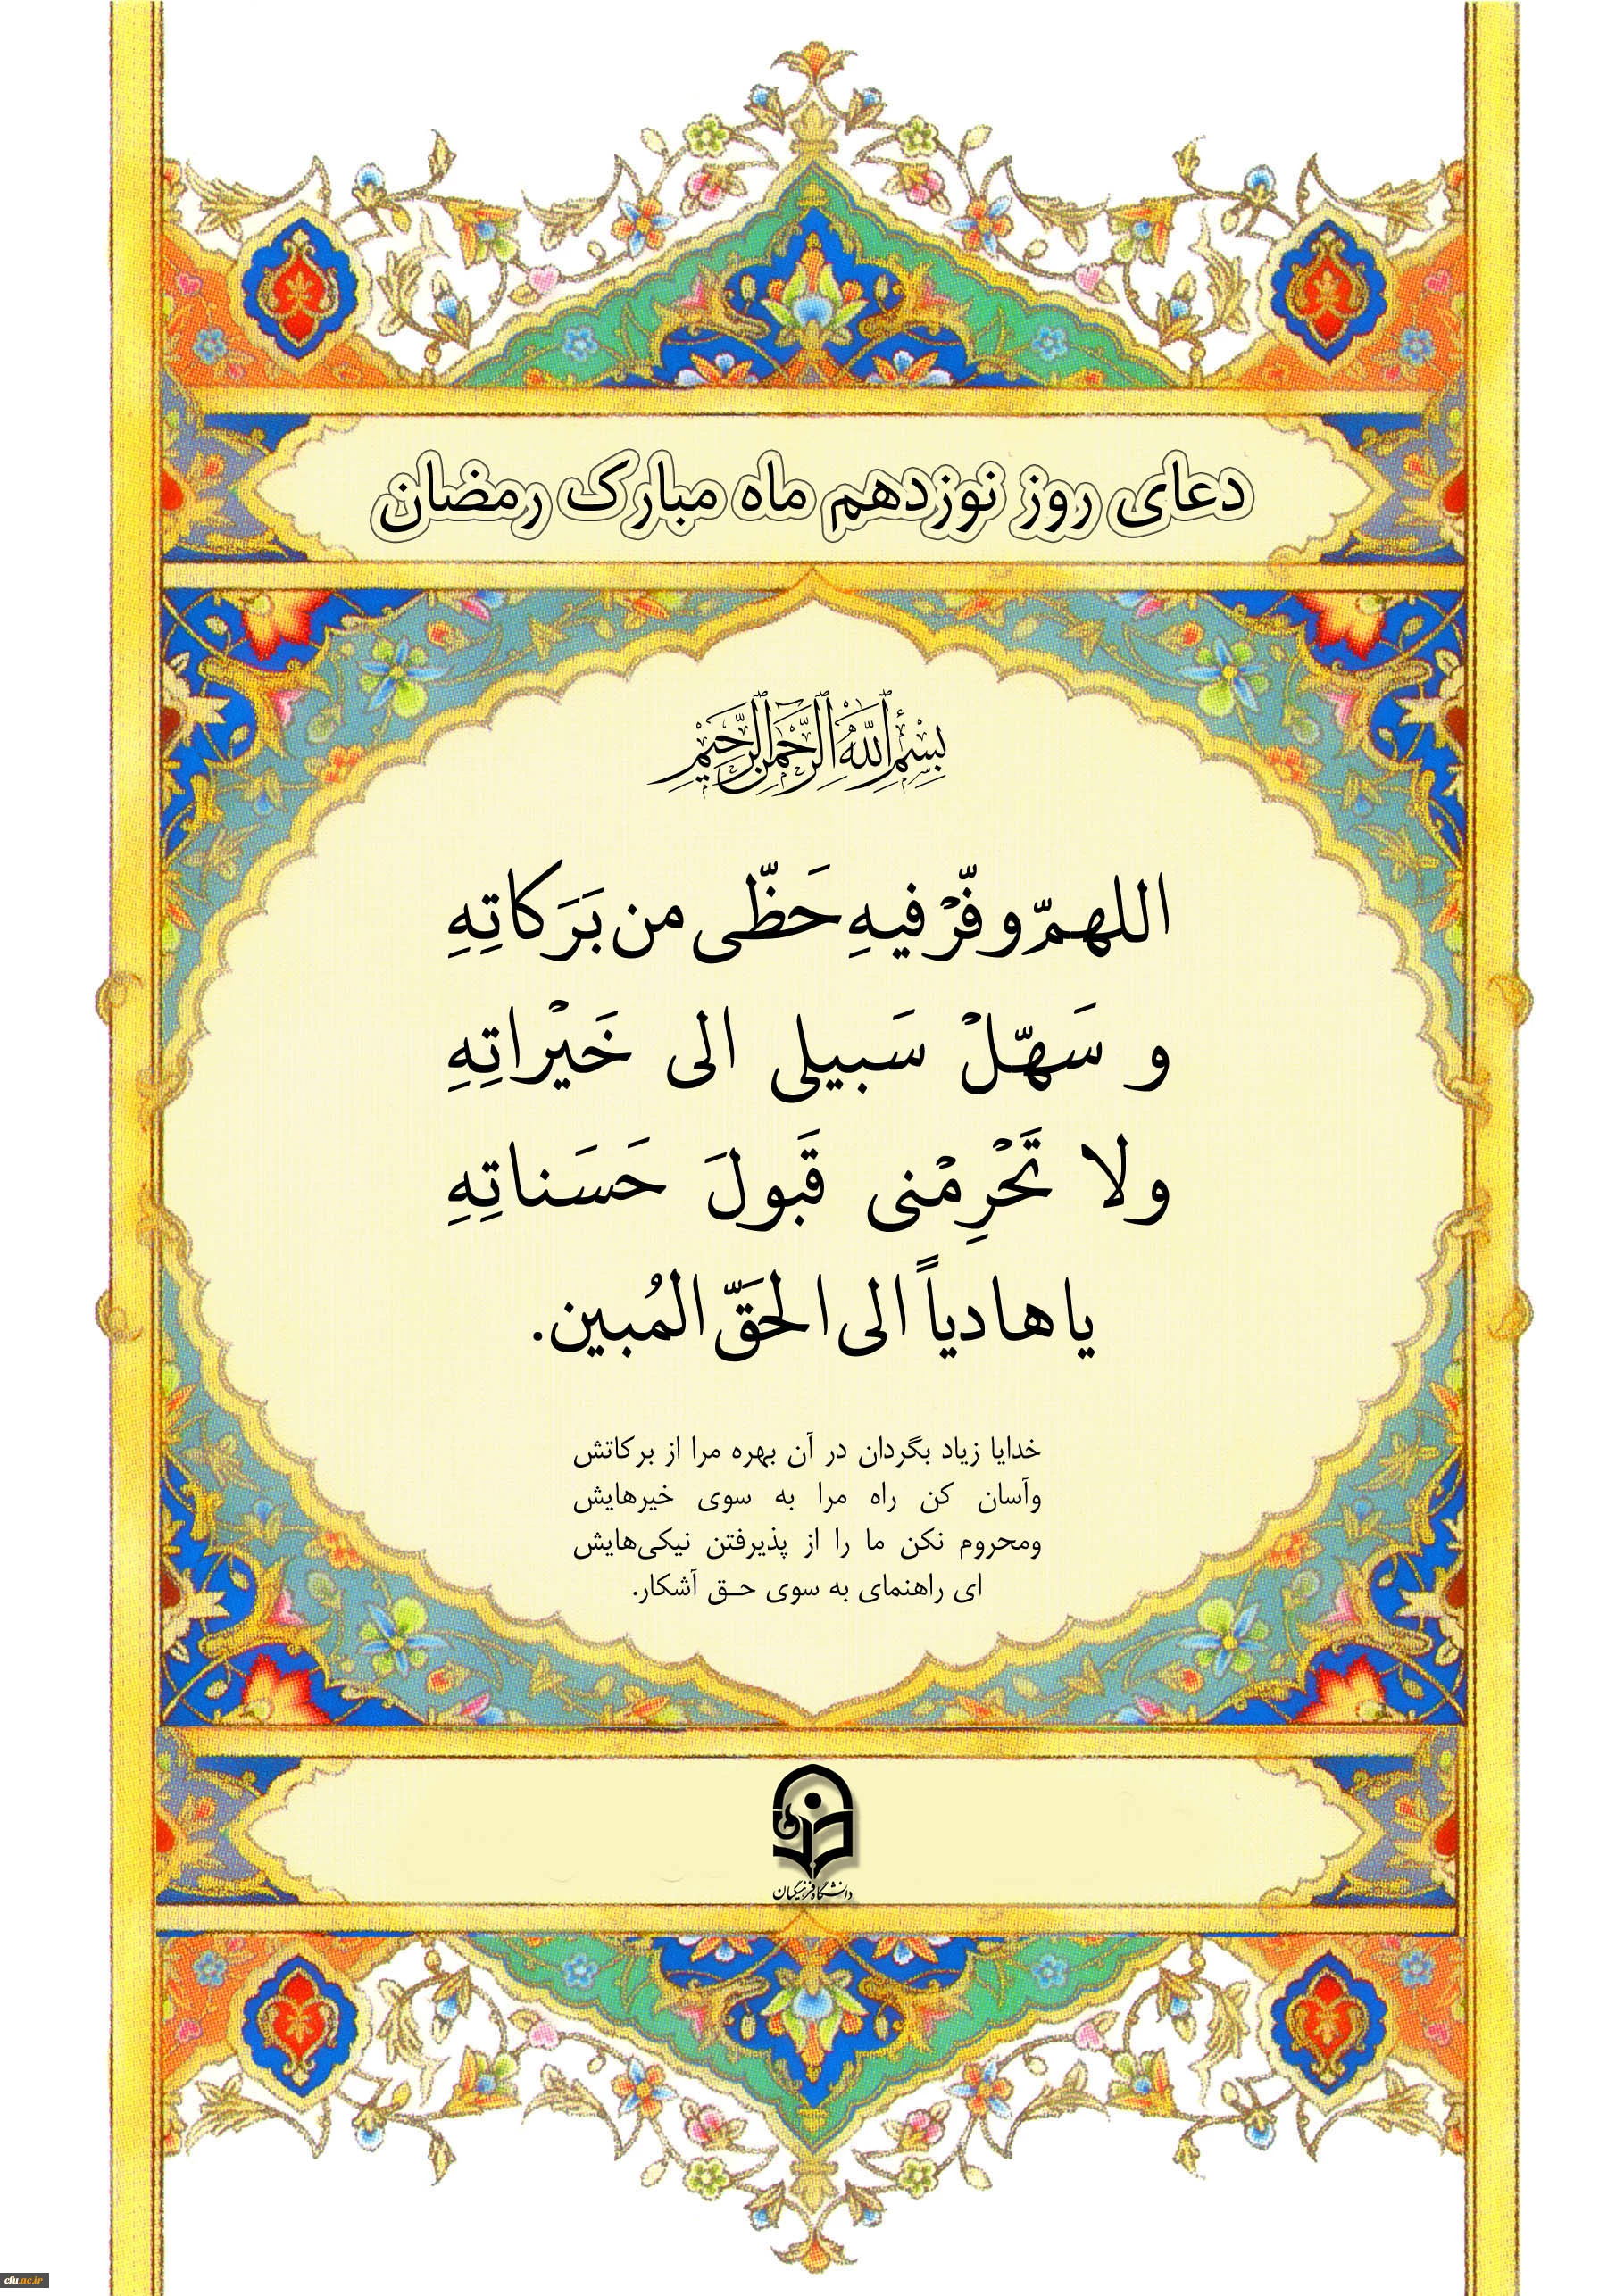 دعای روز نوزدهم ماه مبارک رمضان
بِسْمِ اللَّهِ الرَّحْمَنِ الرَّحِيمِ
اللهمّ وفّرْ فيهِ حَظّی من بَرَكاتِهِ
و سَهّلْ سَبيلی الی خَيْراتِهِ
ولا تَحْرِمْنی قَبولَ حَسَناتِهِ
يا هادياً الی الحَقّ المُبين.
خدایا زیاد بگردان در آن بهره مرا از برکاتش
وآسان کن راه مرا به سوی خیرهایش
ومحروم نکن ما را از پذیرفتن نیکی‌هایش
ای راهنمای به سوی حـق آشکار.
دانشگاه فرهنگیان
cfu.ac.ir